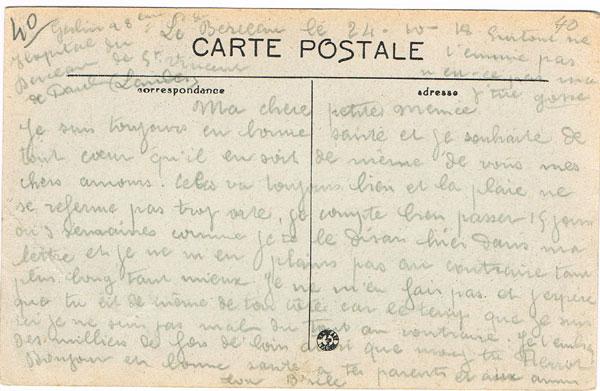 40
Geslin à 8eme
Le Berceau le 24-10-18
Surtout ne
40
Hopital du
CARTE POSTALE
t'ennuie pas
Berceau de St Vincent
de Paul (Landes)
correspondance
adresse
Ma chère petite Mémée
Je suis toujours en bonne santé et je souhaite de
tout cœur qu'il en soit de même de vous mes
chers amours. Cela va toujours bien et la plaie ne
se referme pas trop vite, je compte bien passer 15 jours
ou 3 semaines comme je te le disais hier dans ma
lettre et je ne m'en plains pas au contraire tant
plus long tant mieux. Je ne m'en fais pas et j'espère
que tu est de même de ton côté car le temps que je suis
ici je ne suis pas mal du tout au contraire. Je t'embrasse
des milliers de fois de loin que mon Pierrot
Bonjour en bonne santé à tes parents et aux amis
ton